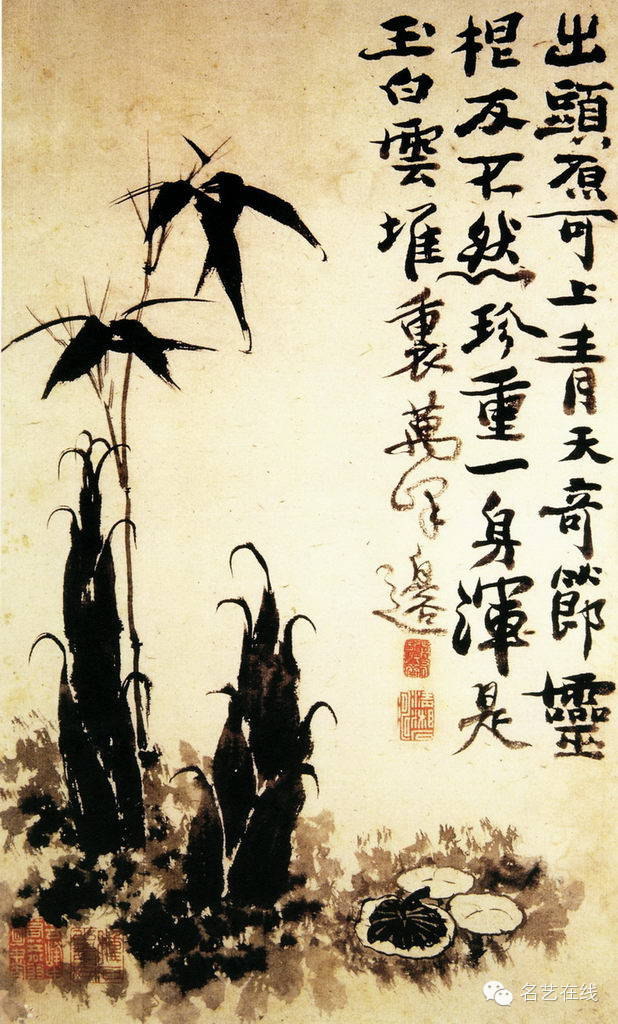 出頭原可上青天奇節靈
根反不然珍重一身渾是
玉白雲堆裏萬峰邊
名艺在线